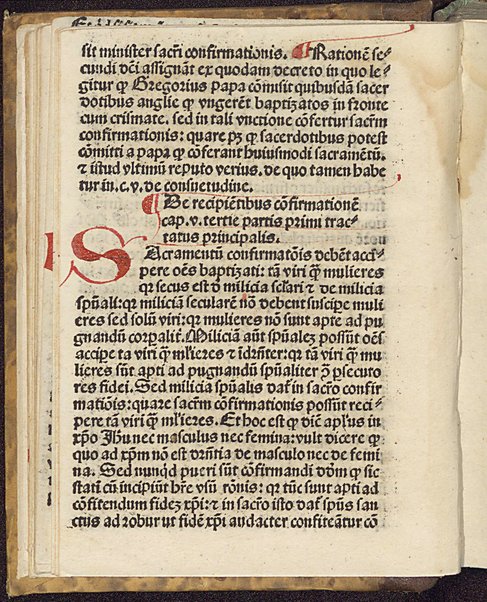 sit minister sacri confirmationis. ¶ Rationē se-
cundi dc̄i assignāt ex quodam decreto in quo le-
gitur ꝙ Gregorius papa cōmisit quibusdā sacer
dotibus anglie ꝙ vngerēt baptizatos in fronte
cum crismate. sed in tali vnctione cōfertur sacrm̄
confirmationis: quare pꝫ ꝙ sacerdotibus potest
cōmitti a papa ꝙ cōferant huiusmodi sacramētū.
⁊ istud vltimū reputo verius. de quo tamen habe
tur in. c. v. de consuetudine.
¶ De recipiētibus cōfirmationē
cap. v. tertie partis primi trac-
tatus principalis.
SAcramentū confirmatōis debēt acci-
pere oēs baptizati: tā viri ꝙ̄ mulieres
qr secus est ď milicia scl'ari ⁊ de milicia
spūali: qr miliciā secularē nō debent suscipe muli
eres sed solū viri: qr mulieres nō sunt apte ad pu
gnandū corpalit̄. Miliciā aūt spūalez possūt oēs
accipe ta viri ꝙ̄ ml'ieres ⁊ idr̄nter: qr tā viri ꝙ̄ mu
lieres sūt apti ad pugnandū spūaliter ↄ̄ psecuto
res fidei. Sed milicia spūalis dat̄ in sacro confir
matiōis: quare sacrm̄ cōfirmationis possūt reci-
pere tā viri ꝙ̄ ml'ieres. Et hoc est ꝙ dic̄ apl'us in
xp̄o Jhū nec masculus nec femina: vult dicere ꝙ
quo ad xp̄m nō est dr̄ntia de masculo nec de femi
na. Sed nunqd pueri sūt cōfirmandi dōm ꝙ sic
stati cū incipiūt hr̄e vsū rōnis: qr tūc sunt apti ad
cōfitendum fidez xp̄i: ⁊ in sacro isto dat̄ spūs san
ctus ad robur ut fidē xp̄i audacter confiteātur cō